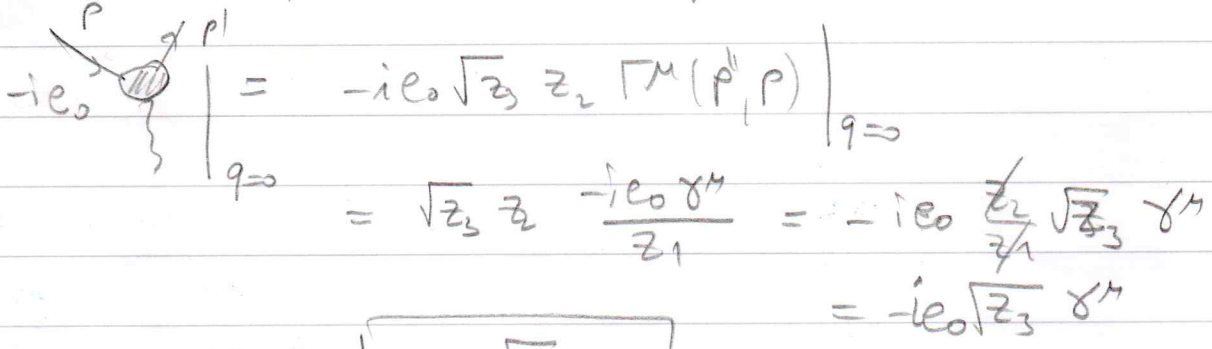 p p'
-ie₀ |_{q=0} = -ie₀ √z₃ z₂ Γ^μ (p', p) |_{q=0}
= √z₃ z₂ \frac{-ie₀ γ^μ}{z₁} = -ie₀ \frac{z₂}{z₁} √z₃ γ^μ
= -ie₀ √z₃ γ^μ